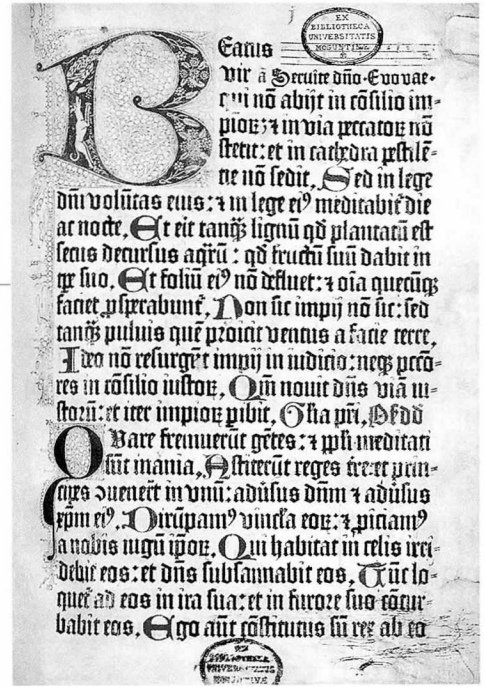 EX
BIBLIOTHECA
UNIVERSITATIS
MOGUNTINAE
Beatus
vir ā̄ Servite dño·Evovae·
qui nō abijt in cōsilio im⸗
pioꝝ: ⁊ in via peccatoꝝ nō
stetit: et in cathedra pestilē⸗
tie nō sedit, Sed in lege
dñi volūtas eius: ⁊ in lege eiꝰ meditabit̄ die
ac nocte, Et erit tanqᷓ lignū qđ plantatū est
secus decursus aqᷓrū: qđ fructū suū dabit in
tꝑe suo, Et foliū eiꝰ nō defluet: ⁊ oīa quecūqꝫ
faciet ꝓsperabunt̄, Non sic impij nō sic: sed
tanqᷓ puluis quē proicit ventus a facie terre,
Ideo nō resurgēt impij in iudicio: neqꝫ pctō⸗
res in cōsilio iustoꝝ, Qm̄ nouit dñs viā iu⸗
storū: et iter impioꝝ ꝑibit, Glia pr̄i,
Quare fremuerūt gētes: ⁊ ppl̄i meditati
sūt inania, Astiterūt reges tr̄e: et prin⸗
cipes ꝯuenerūt in vnū: aduersus dñm ⁊ adūsus
xp̄m eiꝰ, Dirūpamꝰ vincla eoꝝ: ⁊ ꝓiciamꝰ
a nobis iugū ip̄oꝝ, Qui habitat in celis irri⸗
debit eos: et dñs subsannabit eos, Tūc lo⸗
quet̄ ad eos in ira sua: et in furore suo cōtur⸗
babit eos, Ego aūt cōstitutus sū rex ab eo